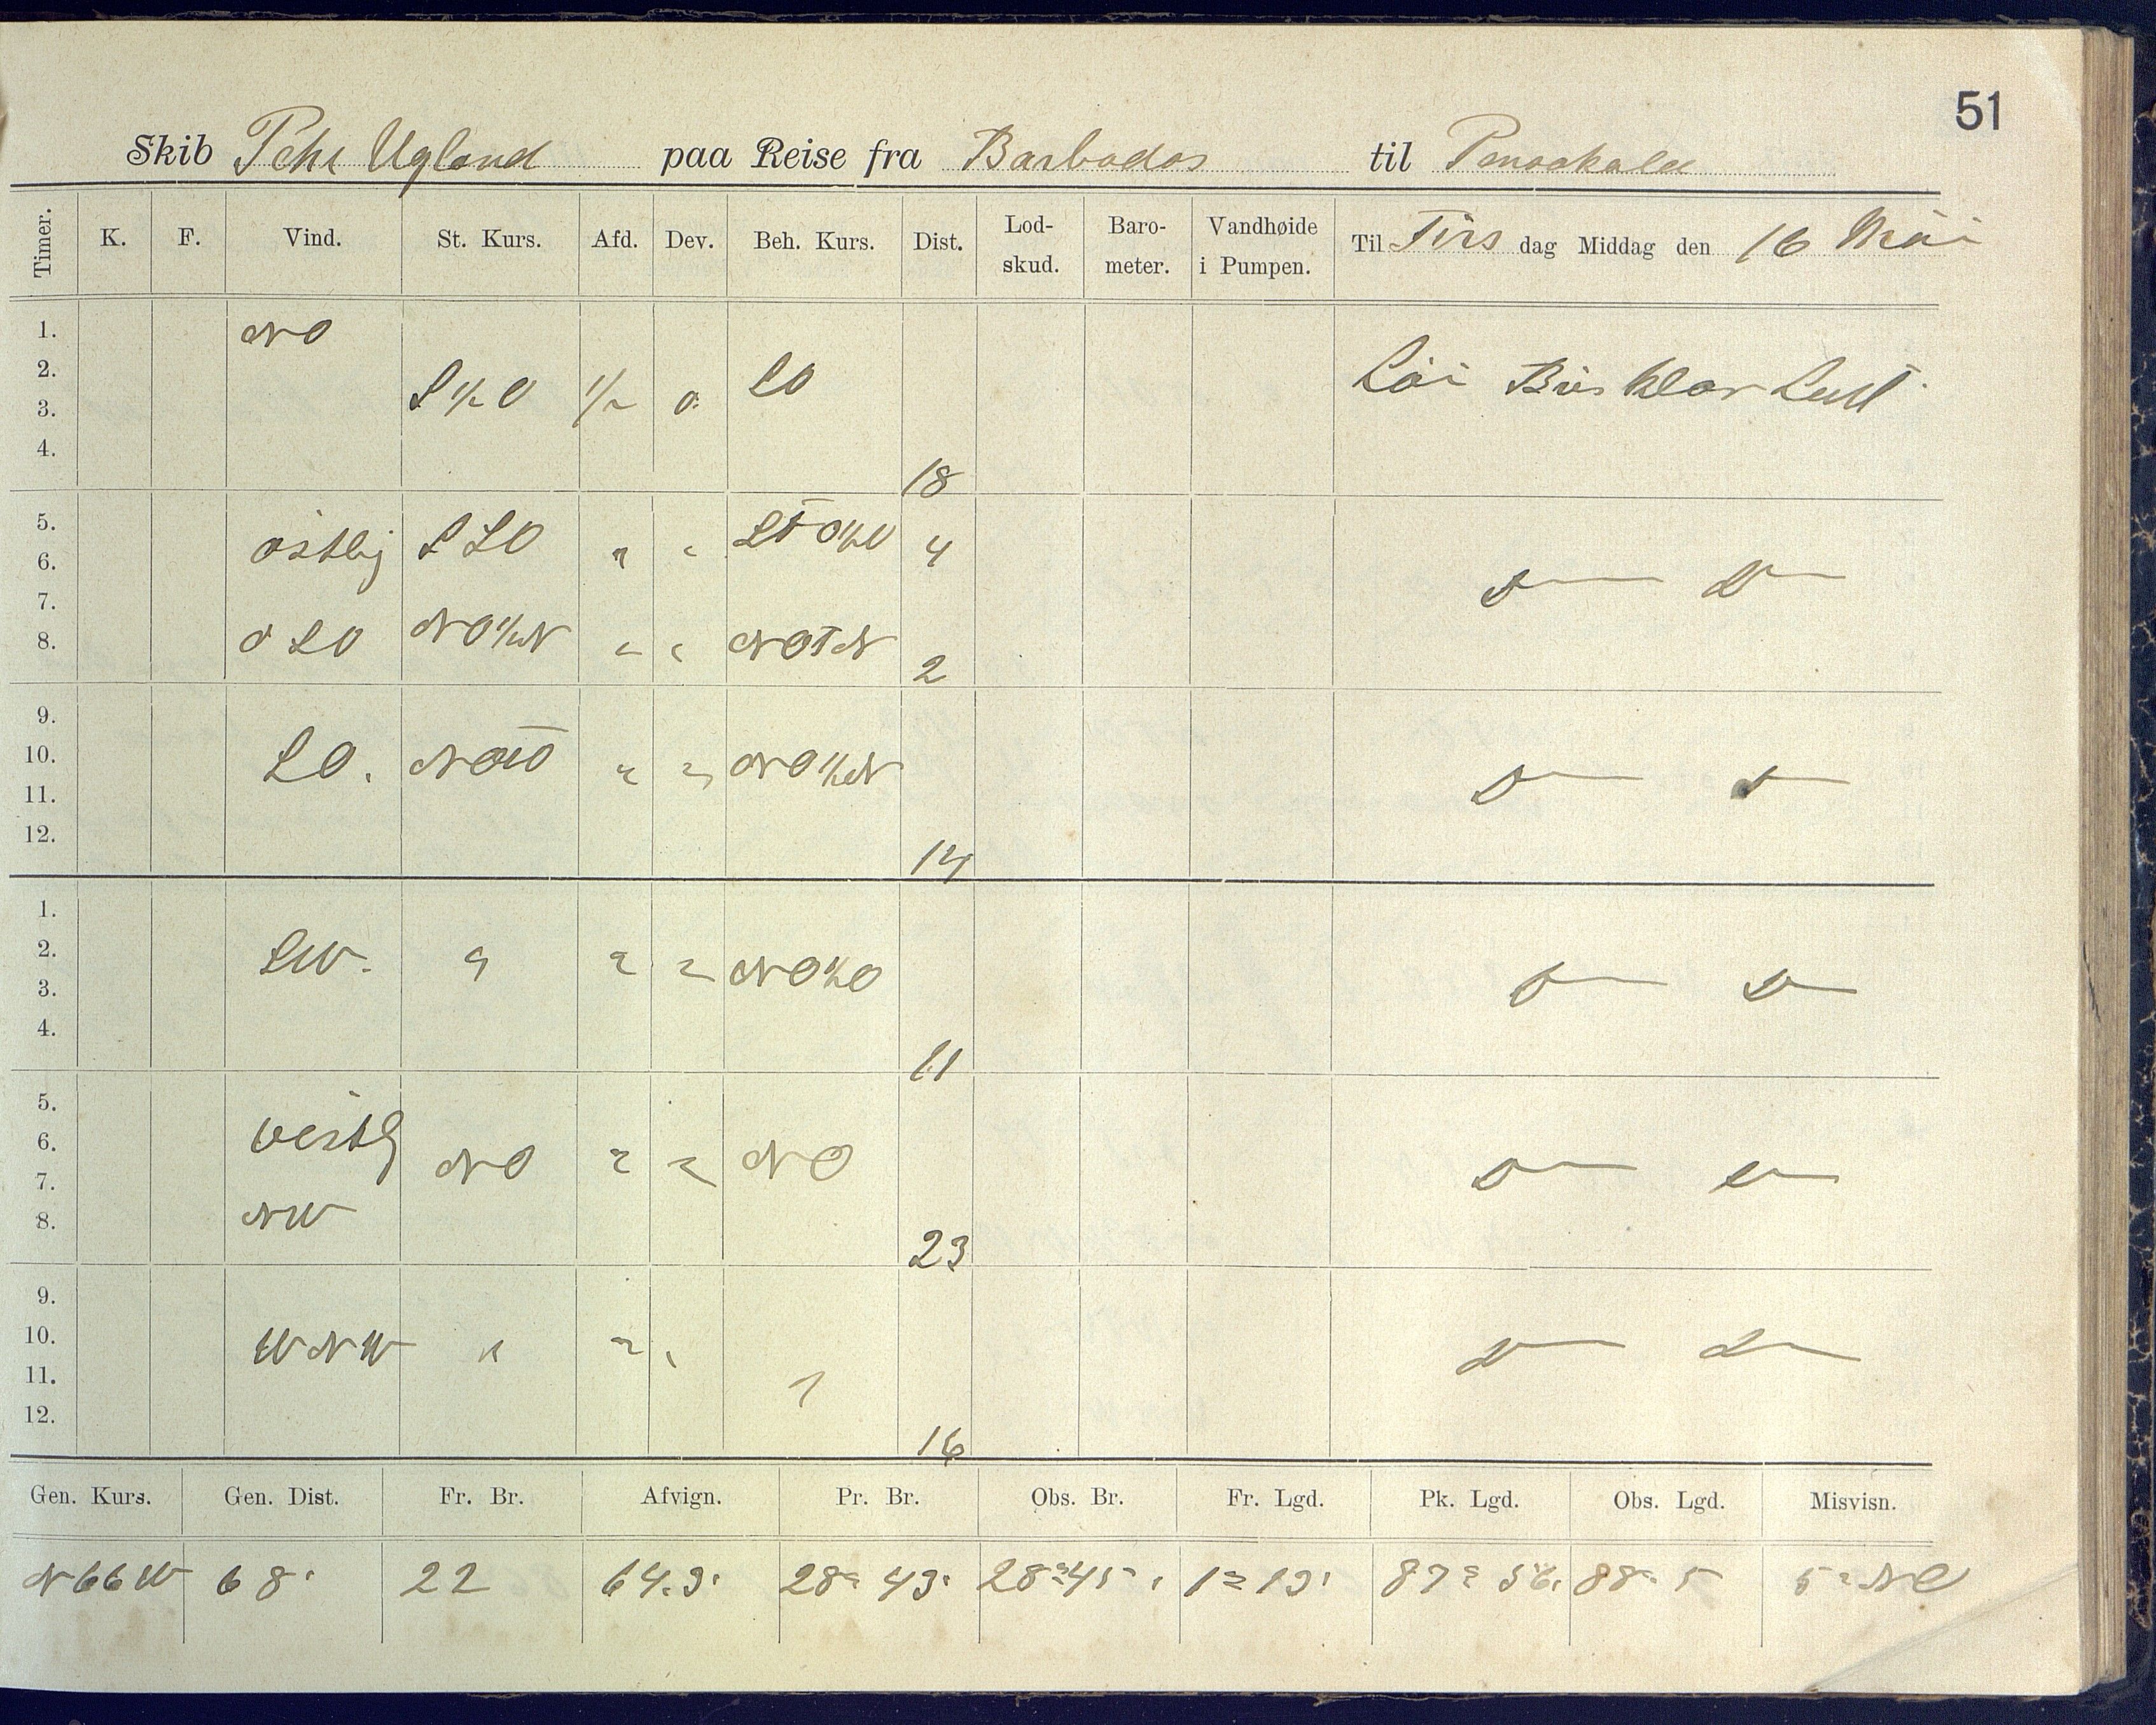 51
Skib Pehr Ugland paa Reise fra Barbados til Pensakola
Timer. K. F. Vind. St. Kurs. Afd. Dev. Beh. Kurs. Dist. Lod-skud. Baro-meter. Vandhøide i Pumpen. Til Tirs dag Middag den 16 Mai
1. NO
2. S½O ½ 0 SO Lai Bris klar Luft
3.
4. 18
5. östlig SSO " " 4
6.
7.
8. OSO NO½N " " NOTN 2
9.
10. SO. NOTO " " NO½N
11.
12. 14
1.
2. SW. " " " NO½O
3.
4. 11
5.
6. vestlg NO " " NO
7.
8. NW 23
9.
10. WNW " " "
11. "
12. 16
Gen. Kurs. Gen. Dist. Fr. Br. Afvign. Pr. Br. Obs. Br. Fr. Lgd. Pk. Lgd. Obs. Lgd. Misvisn.
N66W 68' 22 64.9' 28° 43' 28° 45' 1° 13' 87° 56' 88° 5 5° NO